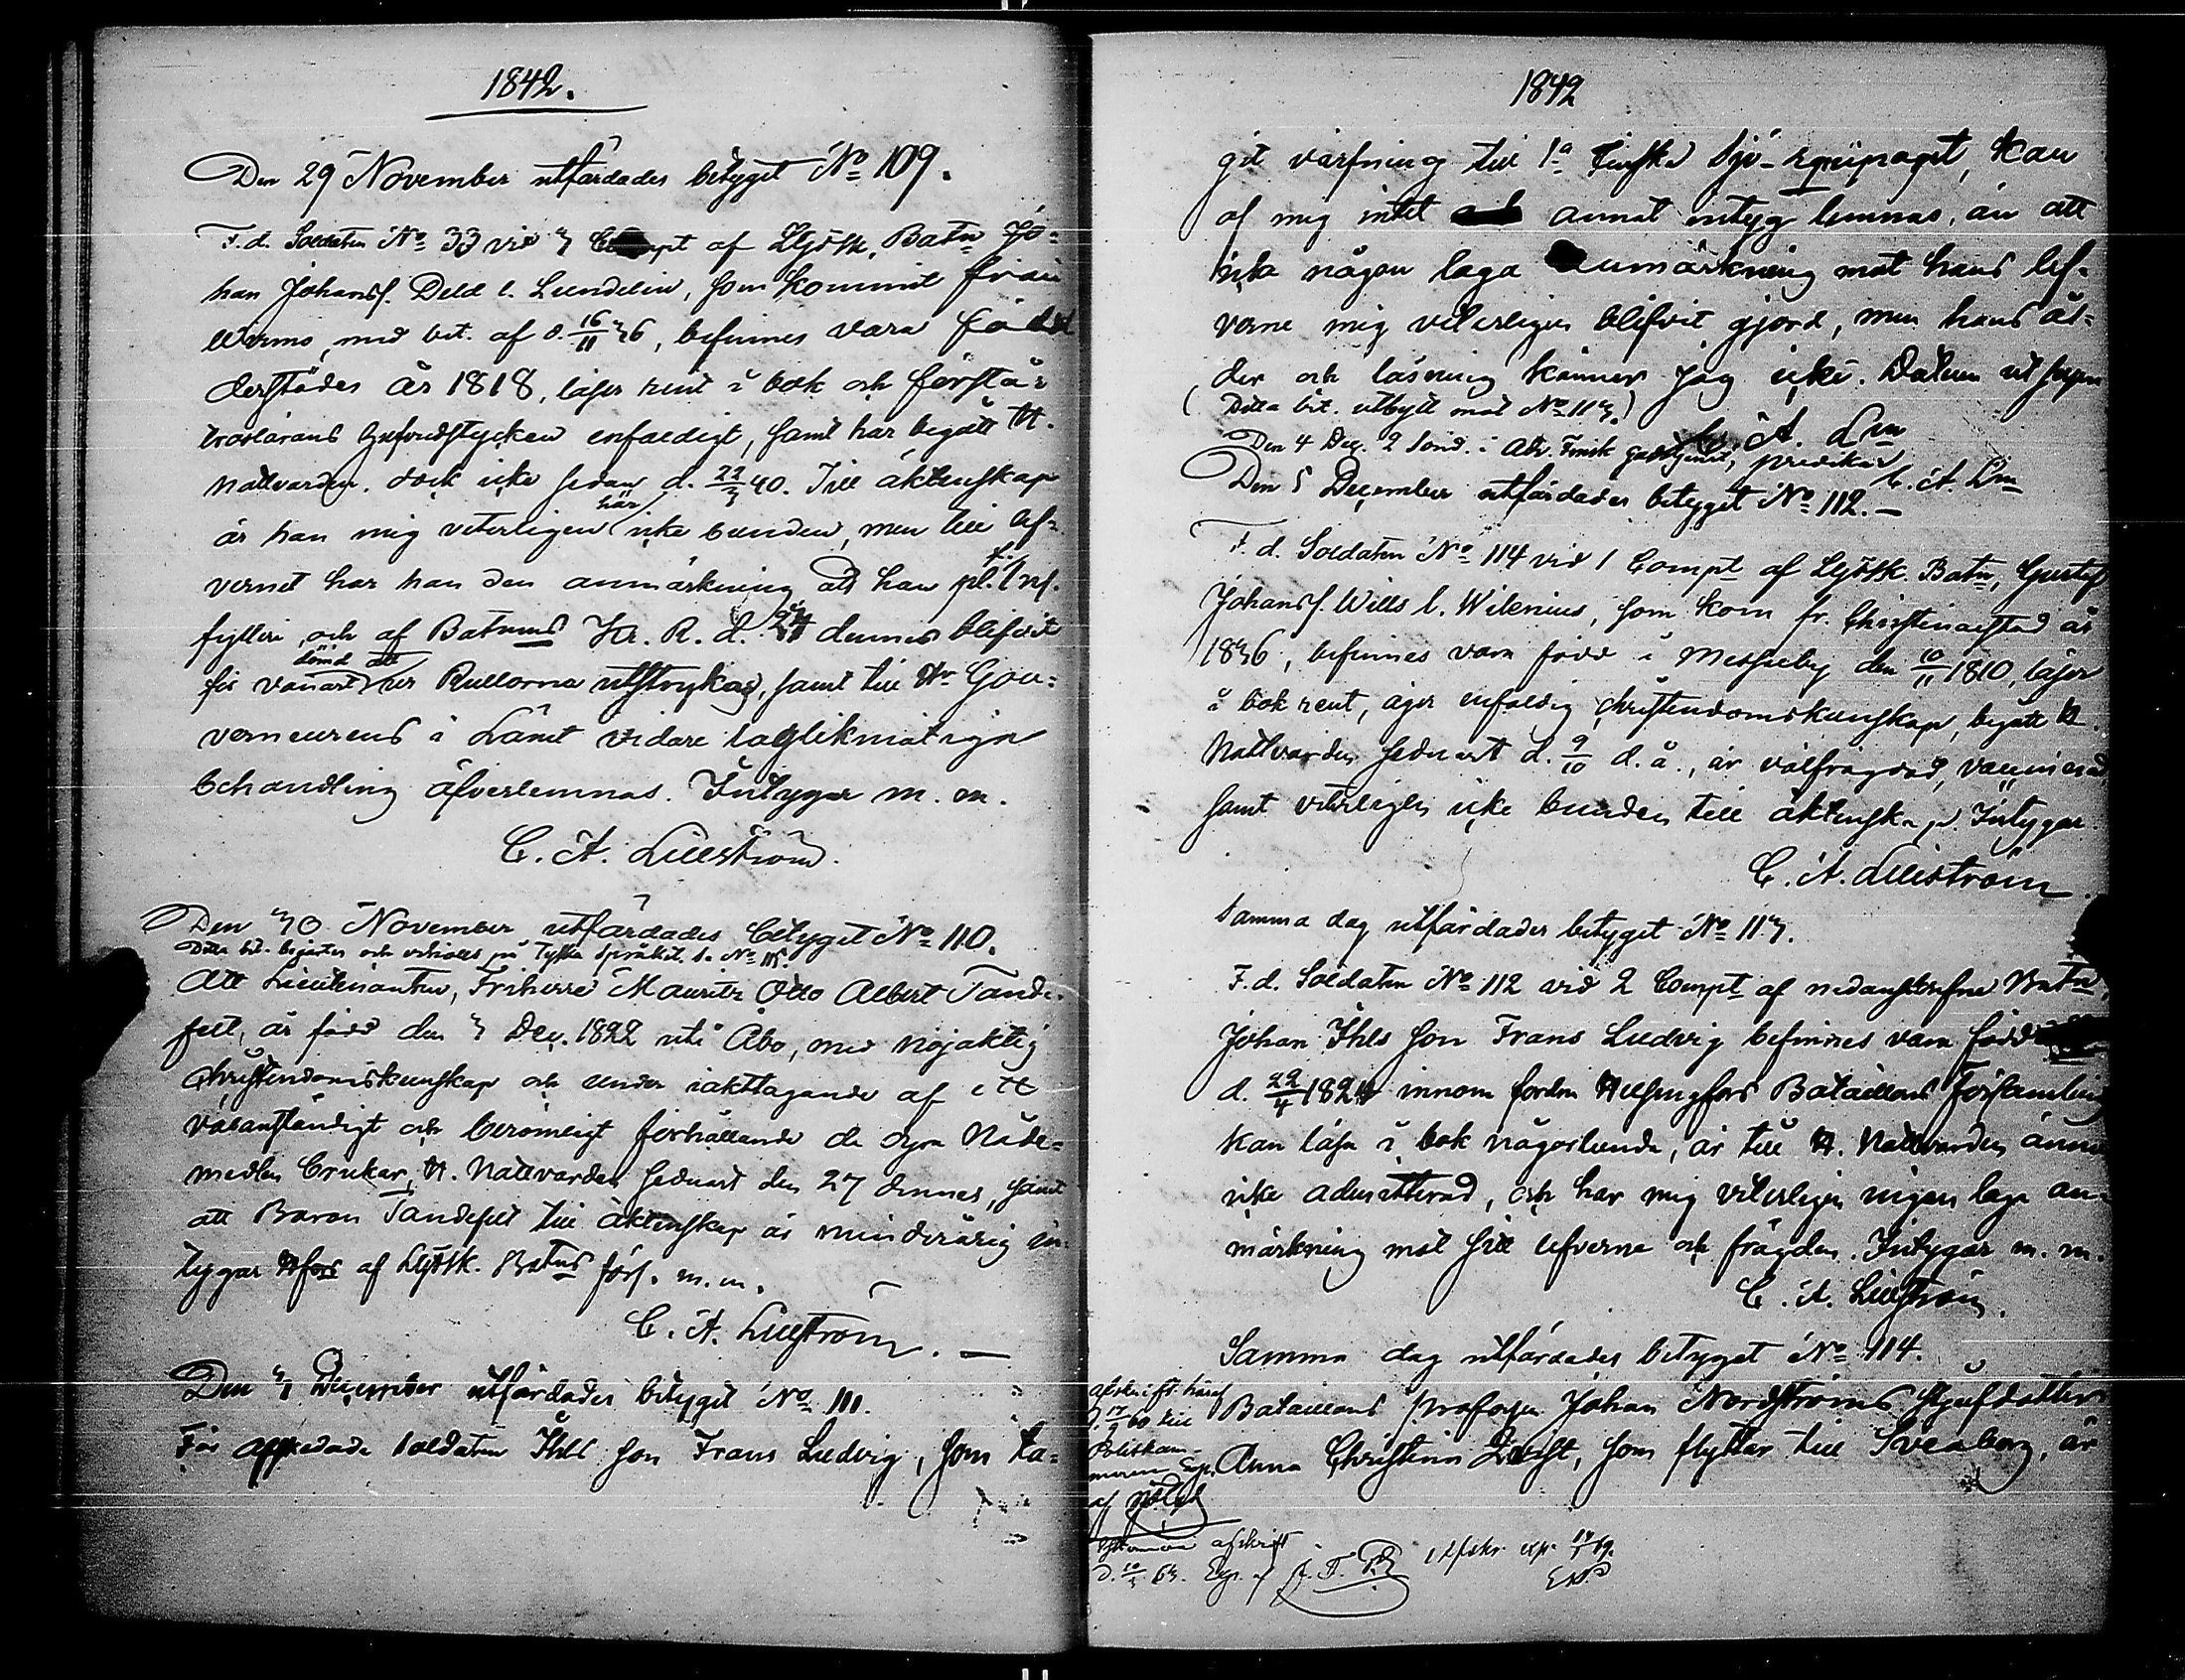 1842.
Den 29 November utfärdades betyget No 109.
F. d. Soldaten No 33 vid 3 Compt af LGFSk. Batn Jo-
han Johanss. Deld l. Lundelin, som kommit från
Wärmo, med bet. af d. 16/11 36, befinnes vara född
derstädes år 1818, läser rent i bok och förstår
troslärans hufvudstycken enfaldigt, samt har begått H.
Nattvarden, dock icke sedan d. 22/3 40. Till äktenskap
är han mig veterligen här icke bunden, men till lef-
vernet har han den anmärkning att han pl. f. 1 ns.
fylleri, och af Batnens Kr. R. d. 24 dennes blifvit
för vanart dömd att ur Rullorna utstrykas, samt till Hr Gou-
verneurens i Länet vidare laglikmätiga
behandling öfverlemnas. Intygar m. m.
C. A. Lilliström.
Den 30 November utfärdades betyget No 110.
Detta bet. begärtes och erhölls på Tyska Språket. Se No 115.
Att Lieutenanten, Friherre Mauritz Otto Albert Tande-
felt, är född den 3 Dec. 1822 uti Åbo, med nöjaktig
christendomskunskap och under iakttagande af ett
välanständigt och berömligt förhållande de dyra Nåde-
medlen brukar, H. Nattvarden sednast den 27 dennes, samt
att Baron Tandefelt till äktenskap är minderårig in-
tygar Hfors af LGFSk. Batns förs. m. m.
C. A. Lilliström. —
Den 3 December utfärdades betyget No 111.
För afskedade Soldaten Ihls son Frans Ludvig, som ta-
1842
git värfning till 1a Finska Sjö-Equipaget, kan
af mig intet annat intyg lemnas, än att
icke någon laga anmärkning mot hans lef-
verne mig veterligen blifvit gjord, men hans ål-
der och läsning känner jag icke. Datum ut supra
(Detta bet. utbytt mot No 113.)
C. A. Lm
Den 4 Dec. 2 Sönd. i Adv. Finsk gudstjenst, predikar C. A. Lm
Den 5 December utfärdades betyget No 112. —
F. d. Soldaten No 114 vid 1 Compt af LGFSk. Batn, Gustaf
Johanss. Wills l. Wilenius, som kom fr. Christinaestad år
1836, befinnes vara född i Messuby den 10/11 1810, läser
i bok rent, äger enfaldig christendomskunskap, begått H.
Nattvarden sednast d. 9/10 d. å., är välfrägdad, vaccinerad
samt veterligen icke bunden till äktenskap. Intygar
C. A. Lilliström.
Samma dag utfärdades betyget No 113.
F. d. Soldaten No 112 vid 2 Compt af nedanskrefne Batn,
Johan Ihls son Frans Ludvig befinnes vara född
d. 22/4 1824 innom fordna Helsingfors Bataillons Församling
kan läsa i bok någorlunda, är till H. Nattvarden ännu
icke admitterad, och har mig veterligen ingen laga an-
märkning mot sitt lefverne och frägden. Intygar m. m.
C. A. Lilliström.
Samma dag utfärdades betyget No 114.
Bataillons Profossen Johan Nordströms styfdotter
Anna Christina Qvist, som flyttar till Sveaborg, är
afskrift häraf
d. 17/9 60 till
Poliskam-
maren Exp.
af
afskrift
d. 10/3 63. Exp. af
1 Afskr. exp. 14/1 69.